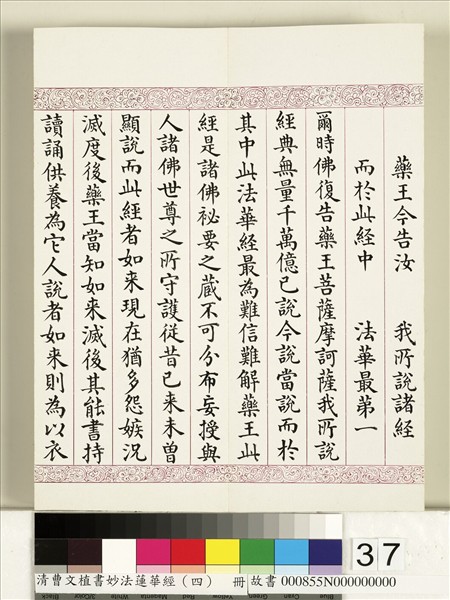 藥王今告汝　我所說諸經
而於此經中　法華最第一
爾時佛復告藥王菩薩摩訶薩我所說
經典無量千萬億已說今說當說而於
其中此法華經最為難信難解藥王此
經是諸佛祕要之藏不可分布妄授與
人諸佛世尊之所守護從昔已来未曾
顯說而此經者如来現在猶多怨嫉况
滅度後藥王當知如来滅後其能書持
讀誦供養為它人說者如来則為以衣
37
清曹文植書妙法蓮華經（四） 冊 故書 000855N000000000